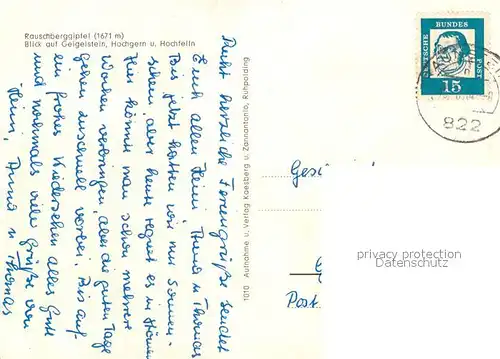 Rauschberggipfel (1671 m)
Blick auf Geigelstein, Hochgern u. Hochfelln
Recht herzliche Feriengrüße sendet
Euch allen Heini Thea u. Thomas
Bis jetzt hatten wir nur Sonnen-
schein, aber heute regnet es in Strömen
Hier könnte man schon mehrere
Wochen verbringen, aber die guten Tage
gehen zu schnell vorbei. Bis auf
ein frohes Wiedersehen alles Gute
und nochmals viele Grüße von
Heini, Anna u. Thomas
1010 Aufnahme u. Verlag Kaesberg u. Zannantonio, Ruhpolding
DEUTSCHE BUNDES POST
15
822
Ges
Post
privacy protection
Datenschutz